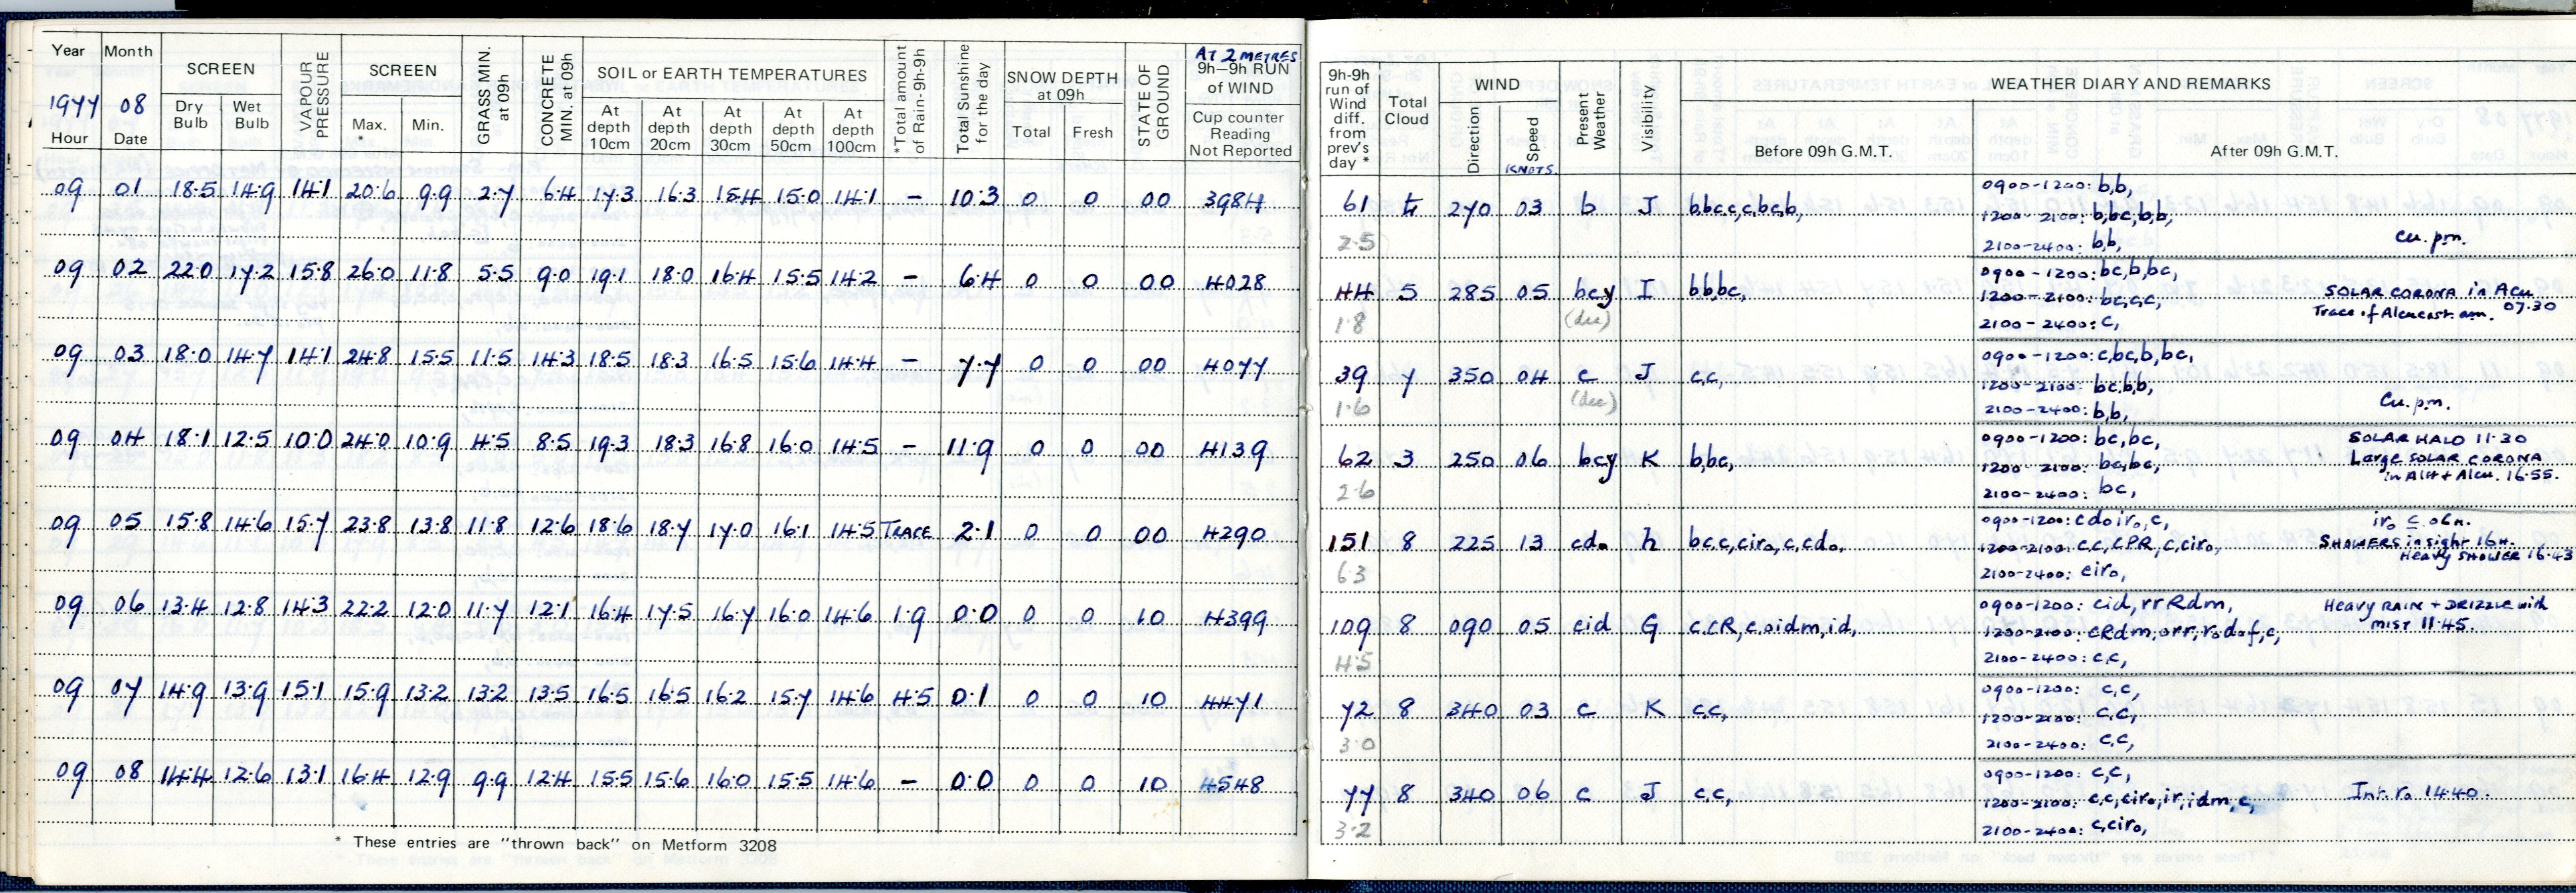 Year Month SCREEN VAPOUR PRESSURE SCREEN GRASS MIN. at 09h CONCRETE MIN. at 09h SOIL or EARTH TEMPERATURES *Total amount of Rain-9h-9h Total Sunshine for the day SNOW DEPTH at 09h STATE OF GROUND AT 2 METRES 9h-9h RUN of WIND
1977 08 Dry Bulb Wet Bulb Max. * Min. At depth 10cm At depth 20cm At depth 30cm At depth 50cm At depth 100cm Total Fresh Cup counter Reading Not Reported
Hour Date
09 01 18.5 14.9 14.1 20.6 9.9 2.7 6.4 17.3 16.3 15.4 15.0 14.1 - 10.3 0 0 00 3984
09 02 22.0 17.2 15.8 26.0 11.8 5.5 9.0 19.1 18.0 16.4 15.5 14.2 - 6.4 0 0 00 4028
09 03 18.0 14.7 14.1 24.8 15.5 11.5 14.3 18.5 18.3 16.5 15.6 14.4 - 7.7 0 0 00 4077
09 04 18.1 12.5 10.0 24.0 10.9 4.5 8.5 19.3 18.3 16.8 16.0 14.5 - 11.9 0 0 00 4139
09 05 15.8 14.6 15.7 23.8 13.8 11.8 12.6 18.6 18.7 17.0 16.1 14.5 TRACE 2.1 0 0 00 4290
09 06 13.4 12.8 14.3 22.2 12.0 11.7 12.1 16.4 17.5 16.7 16.0 14.6 1.9 0.0 0 0 10 4399
09 07 14.9 13.9 15.1 15.9 13.2 13.2 13.5 16.5 16.5 16.2 15.7 14.6 4.5 0.1 0 0 10 4471
09 08 14.4 12.6 13.1 16.4 12.9 9.9 12.4 15.5 15.6 16.0 15.5 14.6 - 0.0 0 0 10 4548
* These entries are "thrown back" on Metform 3208
9h-9h run of Wind diff. from prev's day * Total Cloud WIND Present Weather Visibility WEATHER DIARY AND REMARKS
Direction Speed KNOTS. Before 09h G.M.T. After 09h G.M.T.
0900-1200: b,b,
61 270 03 b J b,bc,c,c,bc,b, 1200-2100: b,bc,b,b,
2.5 2100-2400: b,b, Cu. pm.
0900-1200: bc,b,bc,
44 5 285 05 bcy I b,b,bc, 1200-2100: bc,c,c, SOLAR CORONA in Acu 07.30
1.8 (dee) 2100-2400: c, Trace of Alcucast am.
0900-1200: c,bc,b,bc,
39 7 350 04 c J c,c, 1200-2100: bc,b,b,
1.6 (dee) 2100-2400: b,b, Cu. pm.
0900-1200: bc,bc, SOLAR HALO 11.30
62 3 250 06 bcy K b,bc, 1200-2100: bc,bc, Large SOLAR CORONA
2.6 2100-2400: bc, in Alst + Alcu. 16.55.
0900-1200: cdoiro,c, iro c 06h.
151 8 225 13 cdo h bc,c,ciro,c,cdo, 1200-2100: c,c,cPR,c,ciro, SHOWERS in sight 16h. Heavy SHOWER 16.43
6.3 2100-2400: ciro,
0900-1200: cid,rrRdm, Heavy RAIN + DRIZZLE with
109 8 090 05 cid G c,cR,c,oidm,id, 1200-2100: cRdm,orr,rodof,c, MIST 11.45.
4.5 2100-2400: c,c,
0900-1200: c,c,
72 8 340 03 c K c,c, 1200-2100: c,c,
3.0 2100-2400: c,c,
0900-1200: c,c,
77 8 340 06 c J c,c, 1200-2100: c,c,ciro,ir,idm,c, Int. ro 14.40.
3.2 2100-2400: c,ciro,